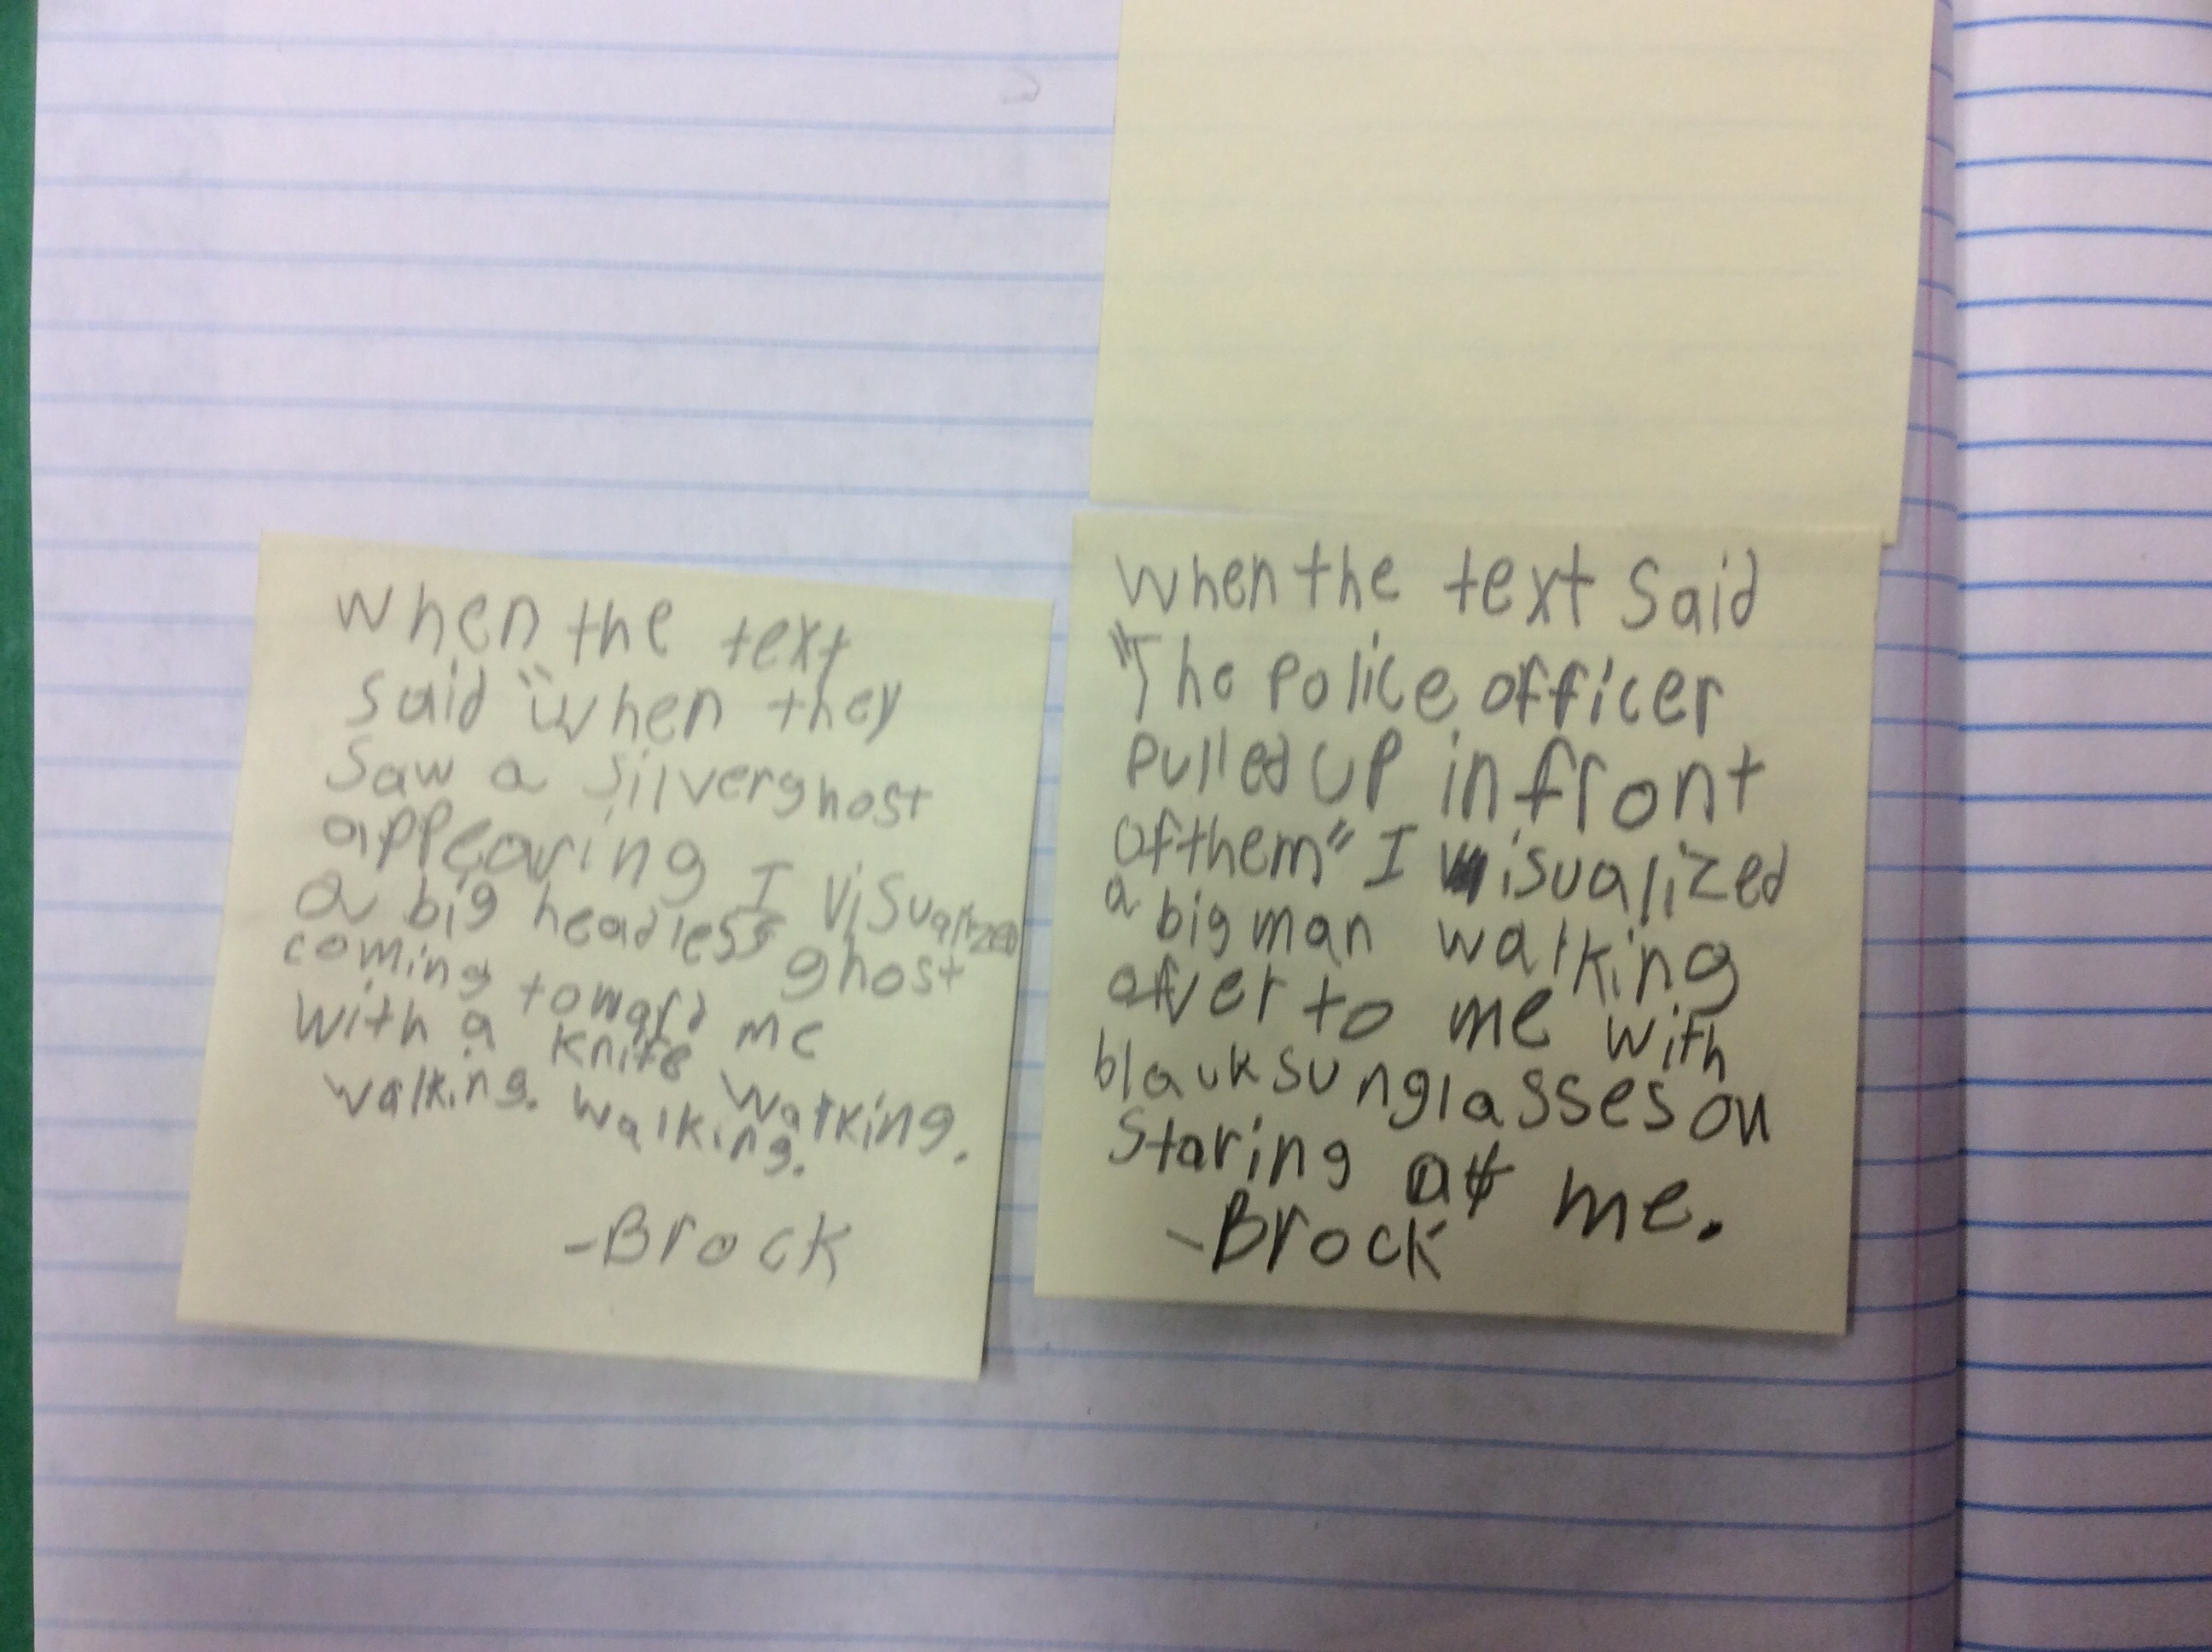 when the text
said "when they
saw a silverghost
appearing I visualized
a big headless ghost
coming toward me
with a knife walking.
walking. walking.
-Brock
when the text said
"The police officer
pulled up in front
of them" I visualized
a big man walking
over to me with
black sunglasses on
staring at me.
-Brock